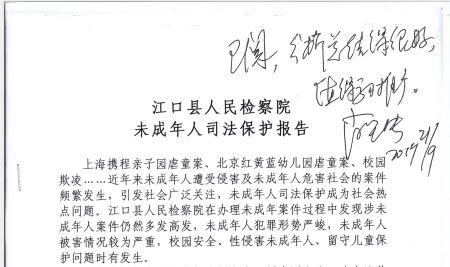 已阅，分析总结得很好，
值得推广。
2019
江口县人民检察院
未成年人司法保护报告
上海携程亲子园虐童案、北京红黄蓝幼儿园虐童案、校园
欺凌……近年来未成年人遭受侵害及未成年人危害社会的案件
频繁发生，引发社会广泛关注，未成年人司法保护成为社会热
点问题。江口县人民检察院在办理未成年案件过程中发现涉未
成年人案件仍然多发高发，未成年人犯罪形势严峻，未成年人
被害情况较为严重，校园安全、性侵害未成年人、留守儿童保
护问题时有发生。